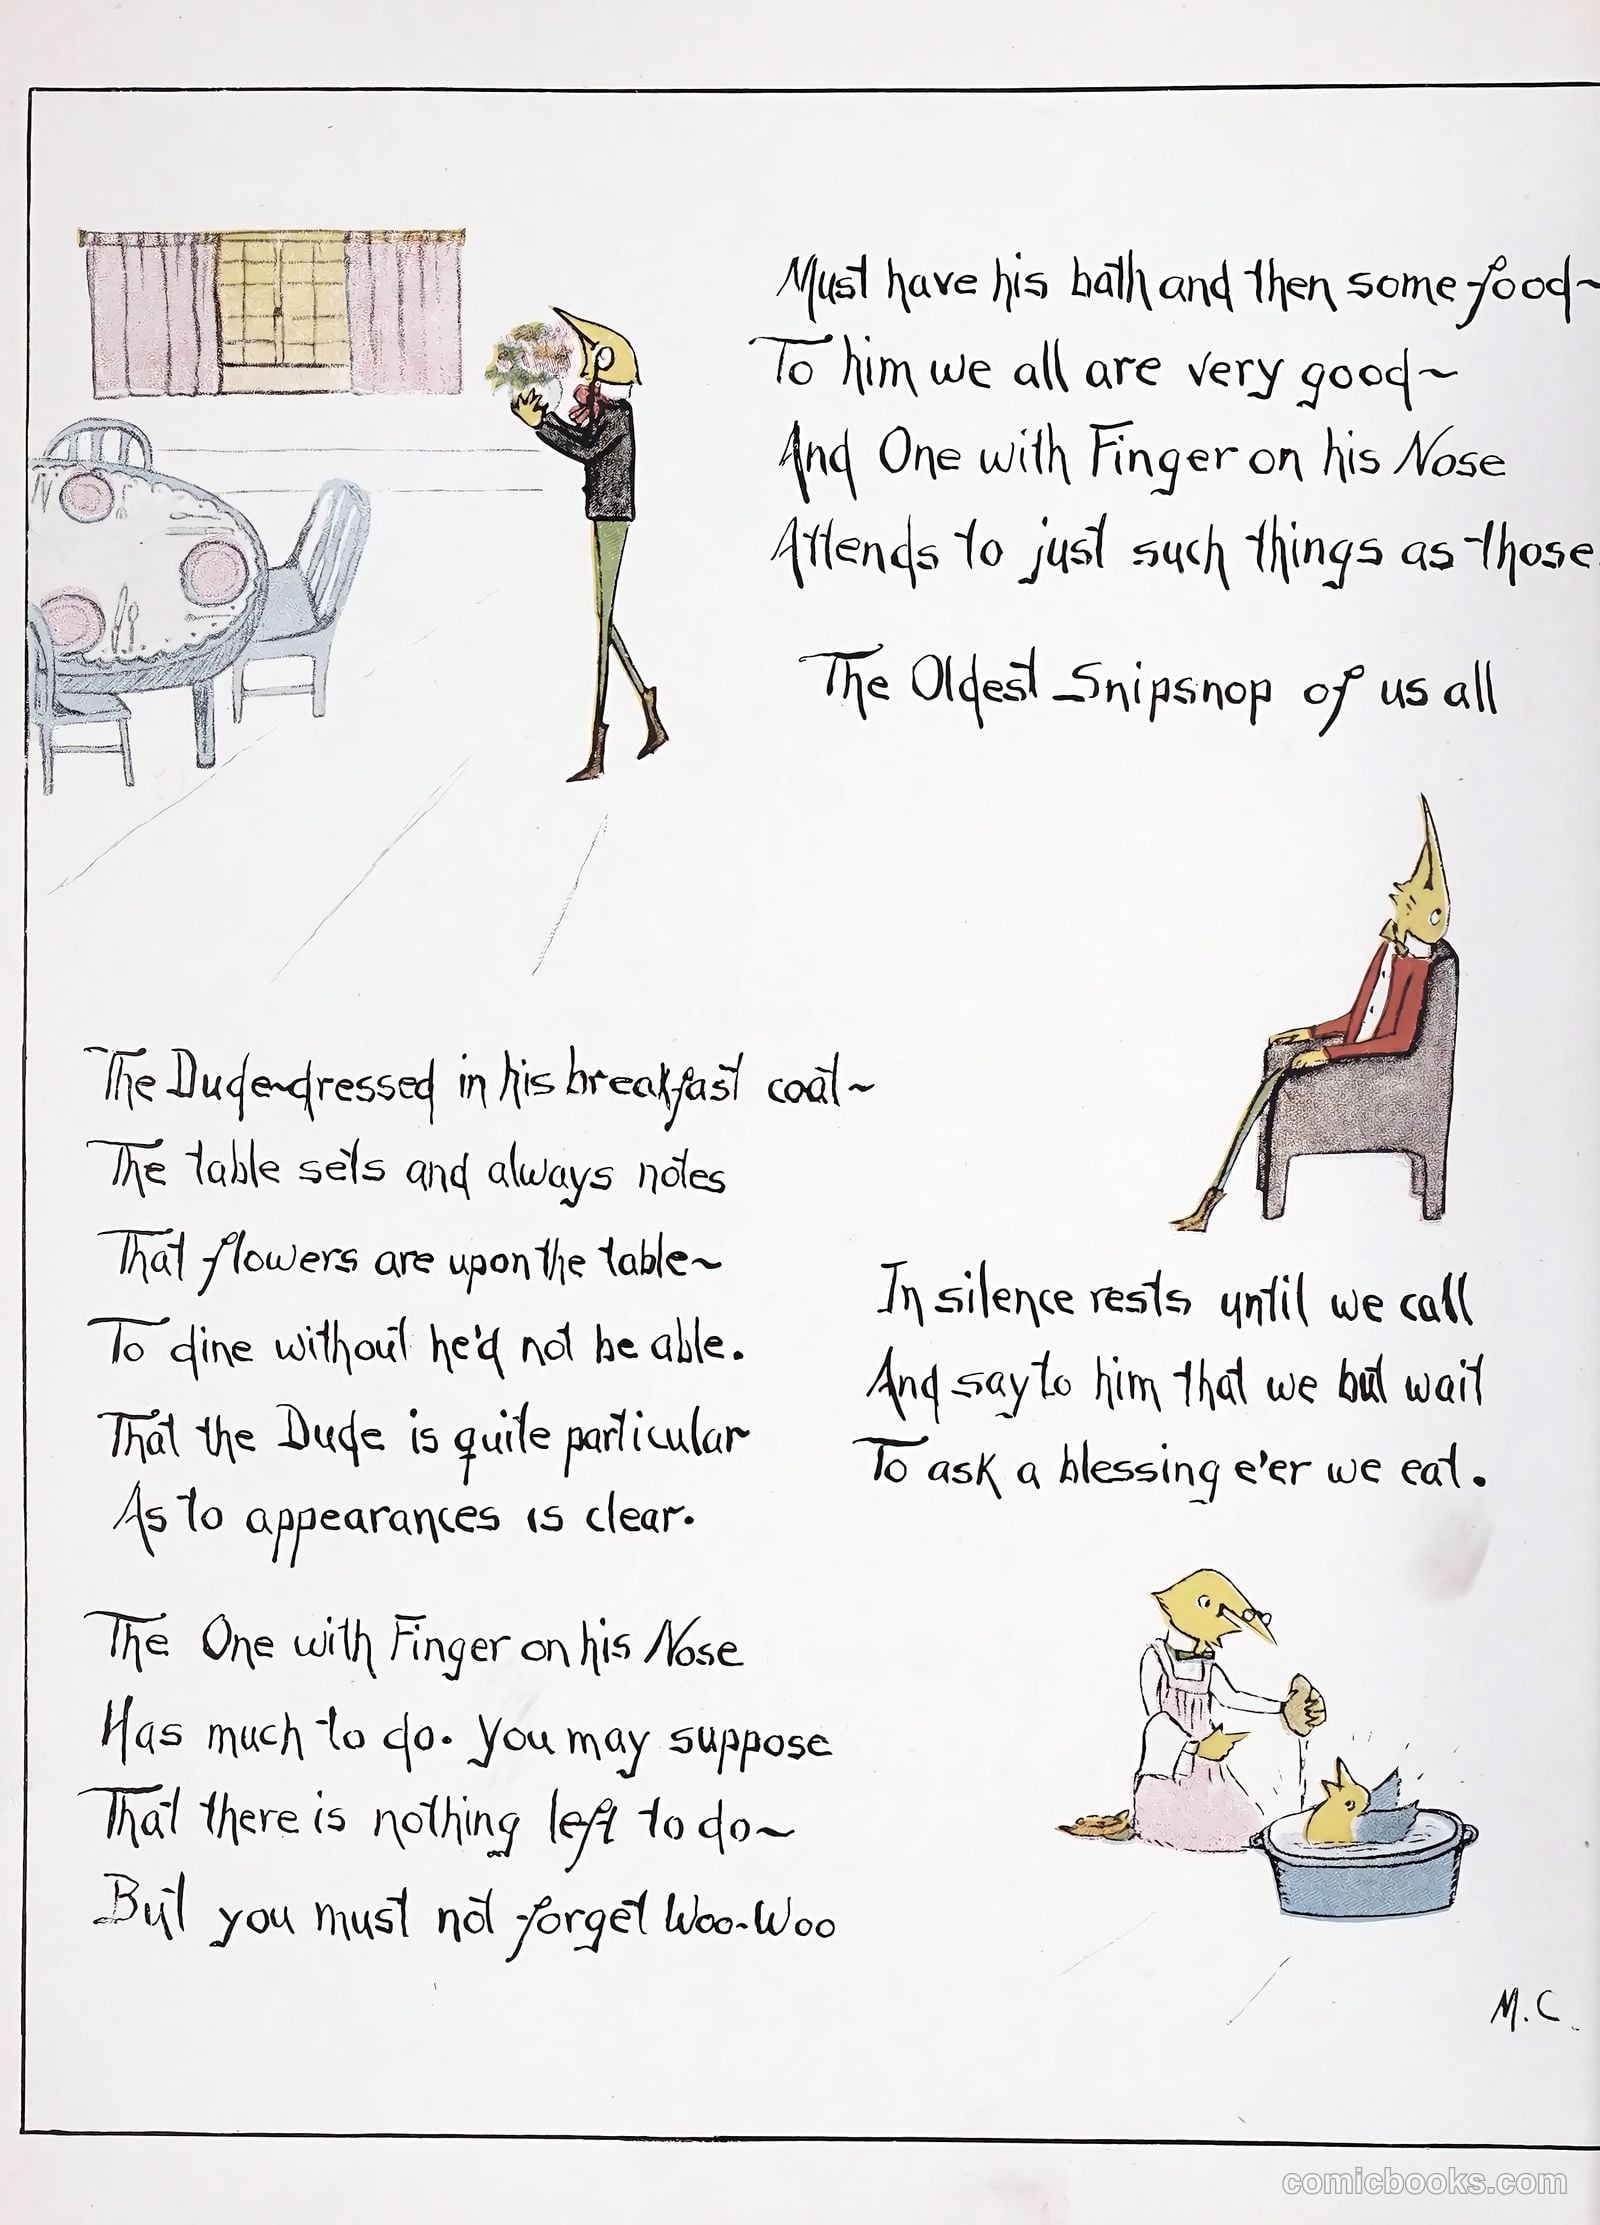 The Dude~dressed in his breakfast coat~
The table sets and always notes
That flowers are upon the table~
To dine without he'd not be able.
That the Dude is quite particular
As to appearances is clear.
The One with Finger on his Nose
Has much to do. You may suppose
That there is nothing left to do~
But you must not forget Woo-Woo
Must have his bath and then some food~
To him we all are very good~
And One with Finger on his Nose
Attends to just such things as those.
The Oldest Snipsnop of us all
In silence rests until we call
And say to him that we but wait
To ask a blessing e'er we eat.
M.C.
comicbooks.com